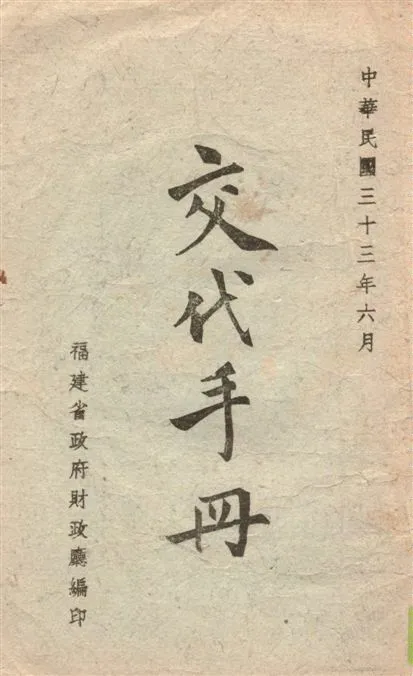 中華民國三十三年六月
交代手冊
福建省政府財政廳編印